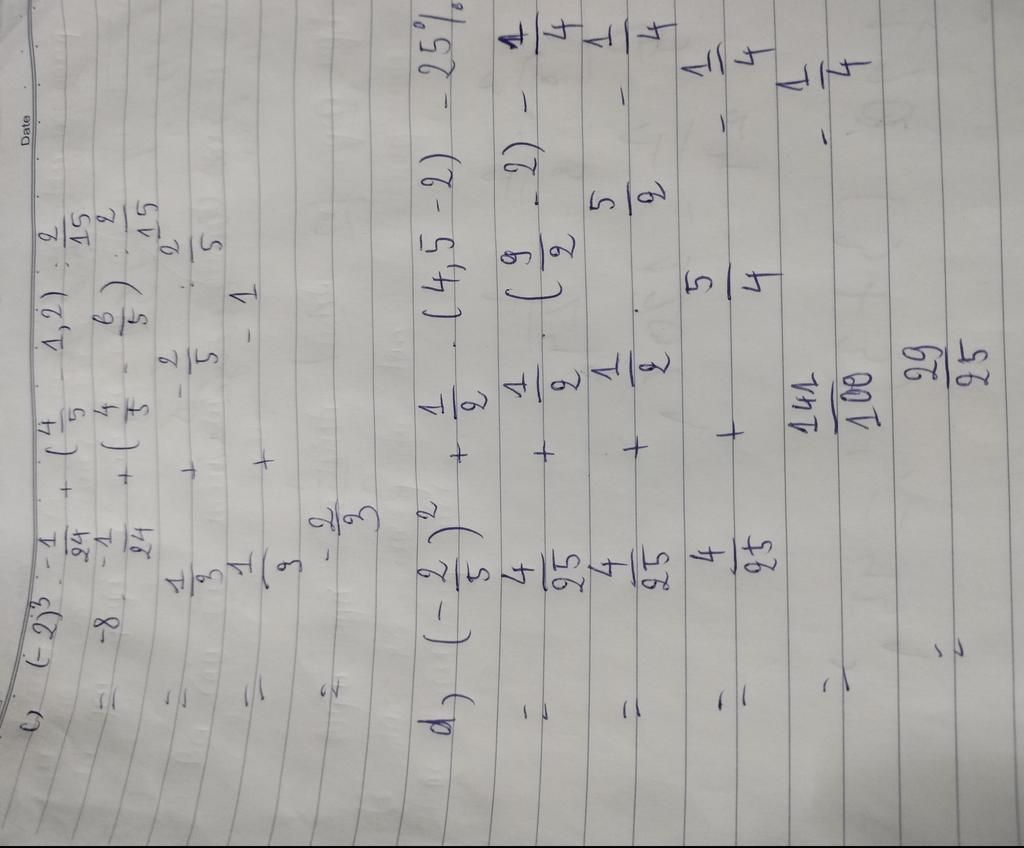 Date
c) (-2)³ . -1/24 + (4/5 - 1,2) : 2/15
= -8 . -1/24 + (4/5 - 6/5) : 2/15
= 1/3 + -2/5 : 2/5
= 1/3 + -1
= -2/3
d) (-2/5)² + 1/2 . (4,5 - 2) - 25%
= 4/25 + 1/2 . (9/2 - 2) - 1/4
= 4/25 + 1/2 . 5/2 - 1/4
= 4/25 + 5/4 - 1/4
= 141/100 - 1/4
= 29/25